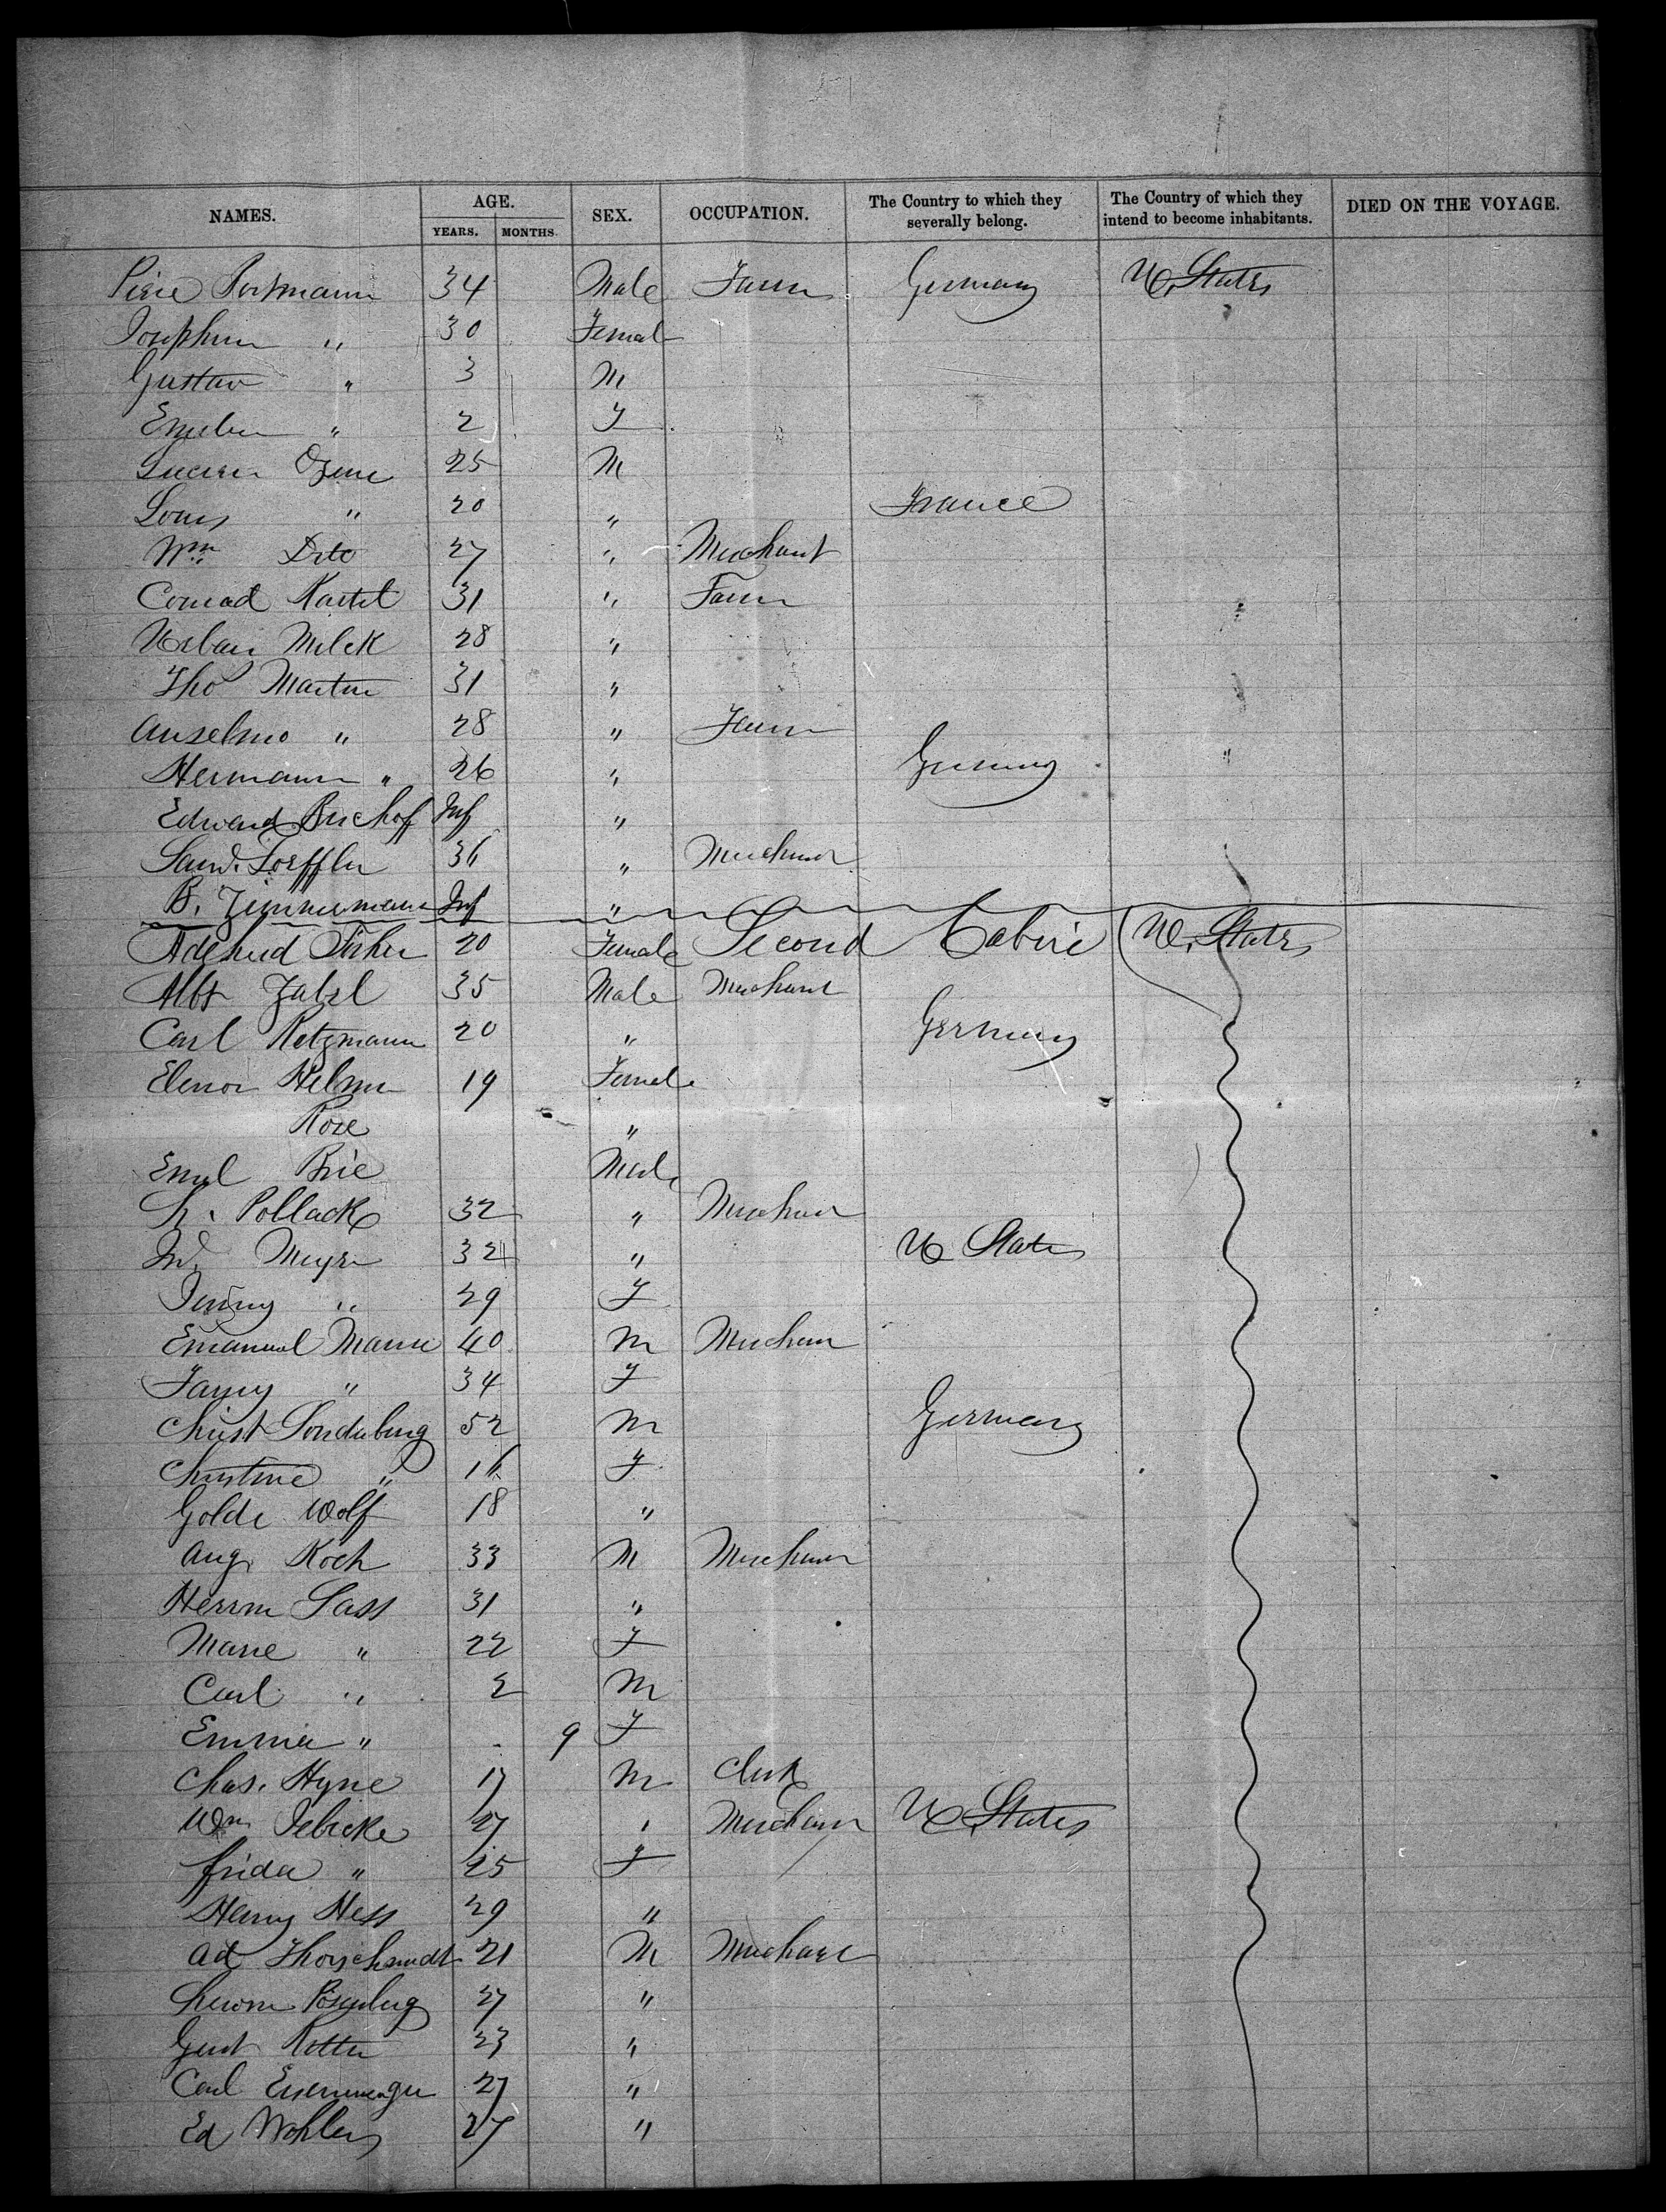 NAMES. AGE. SEX. OCCUPATION. The Country to which they severally belong. The Country of which they intend to become inhabitants. DIED ON THE VOYAGE.
YEARS. MONTHS.
Portmann 34 Male Farm Germany U. States
Josephin " 30 Female
Gustav " 3 M
" 2 F
Lucien Ozene 25 M
Louis " 20 " France
Wm Dito 27 " Merchant
Conrad 31 " Farm
Urban Milek 28 "
Tho Martin 31 "
Anselmo " 28 " Farm
Hermann " 26 " Germany "
Edward Bischof Inf "
Loeffler 36 " Merchant
B. Zimmermann Inf "
Fisher 20 Female Second Cabin U. States
Albt Zabel 35 Male Merchant
Carl Retzmann 20 " Germany
Elenor Helm 19 Female
Rose "
Emil Brie Male
Pollack 32 " Merchant
Meyer 32 " U States
Jenny " 29 F
Emanuel Mann 40 M Merchan
Fanny " 34 F
Christ Sonderburg 52 M Germany
Christine " 16 F
Golde Wolf 18 "
Aug. Koch 33 M Merchan
Herrm Sass 31 "
Marie " 22 F
Carl " 2 M
Emma " 9 F
Chas. Hyne 17 M Clerk
Wm Jebicke 27 " Merchan U. States
Frida " 25 F
Henry Hess 29 "
Ad Thorschmidt 21 M Merchant
Rosenberg 27 "
Gust Rotter 23 "
Carl 27 "
Ed Wohlers 27 "